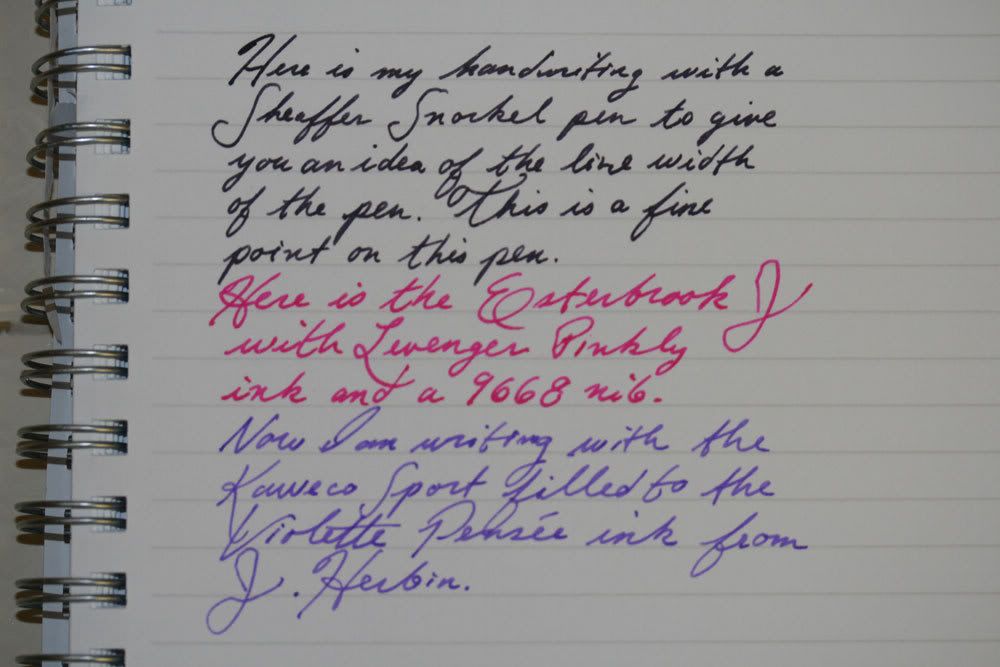 Here is my handwriting with a
Sheaffer Snorkel pen to give
you an idea of the line width
of the pen. This is a fine
point on this pen.
Here is the Esterbrook J
with Levenger Pinkly
ink and a 9668 nib.
Now I am writing with the
Kaweco Sport filled to the
Violette Pensée ink from
J. Herbin.